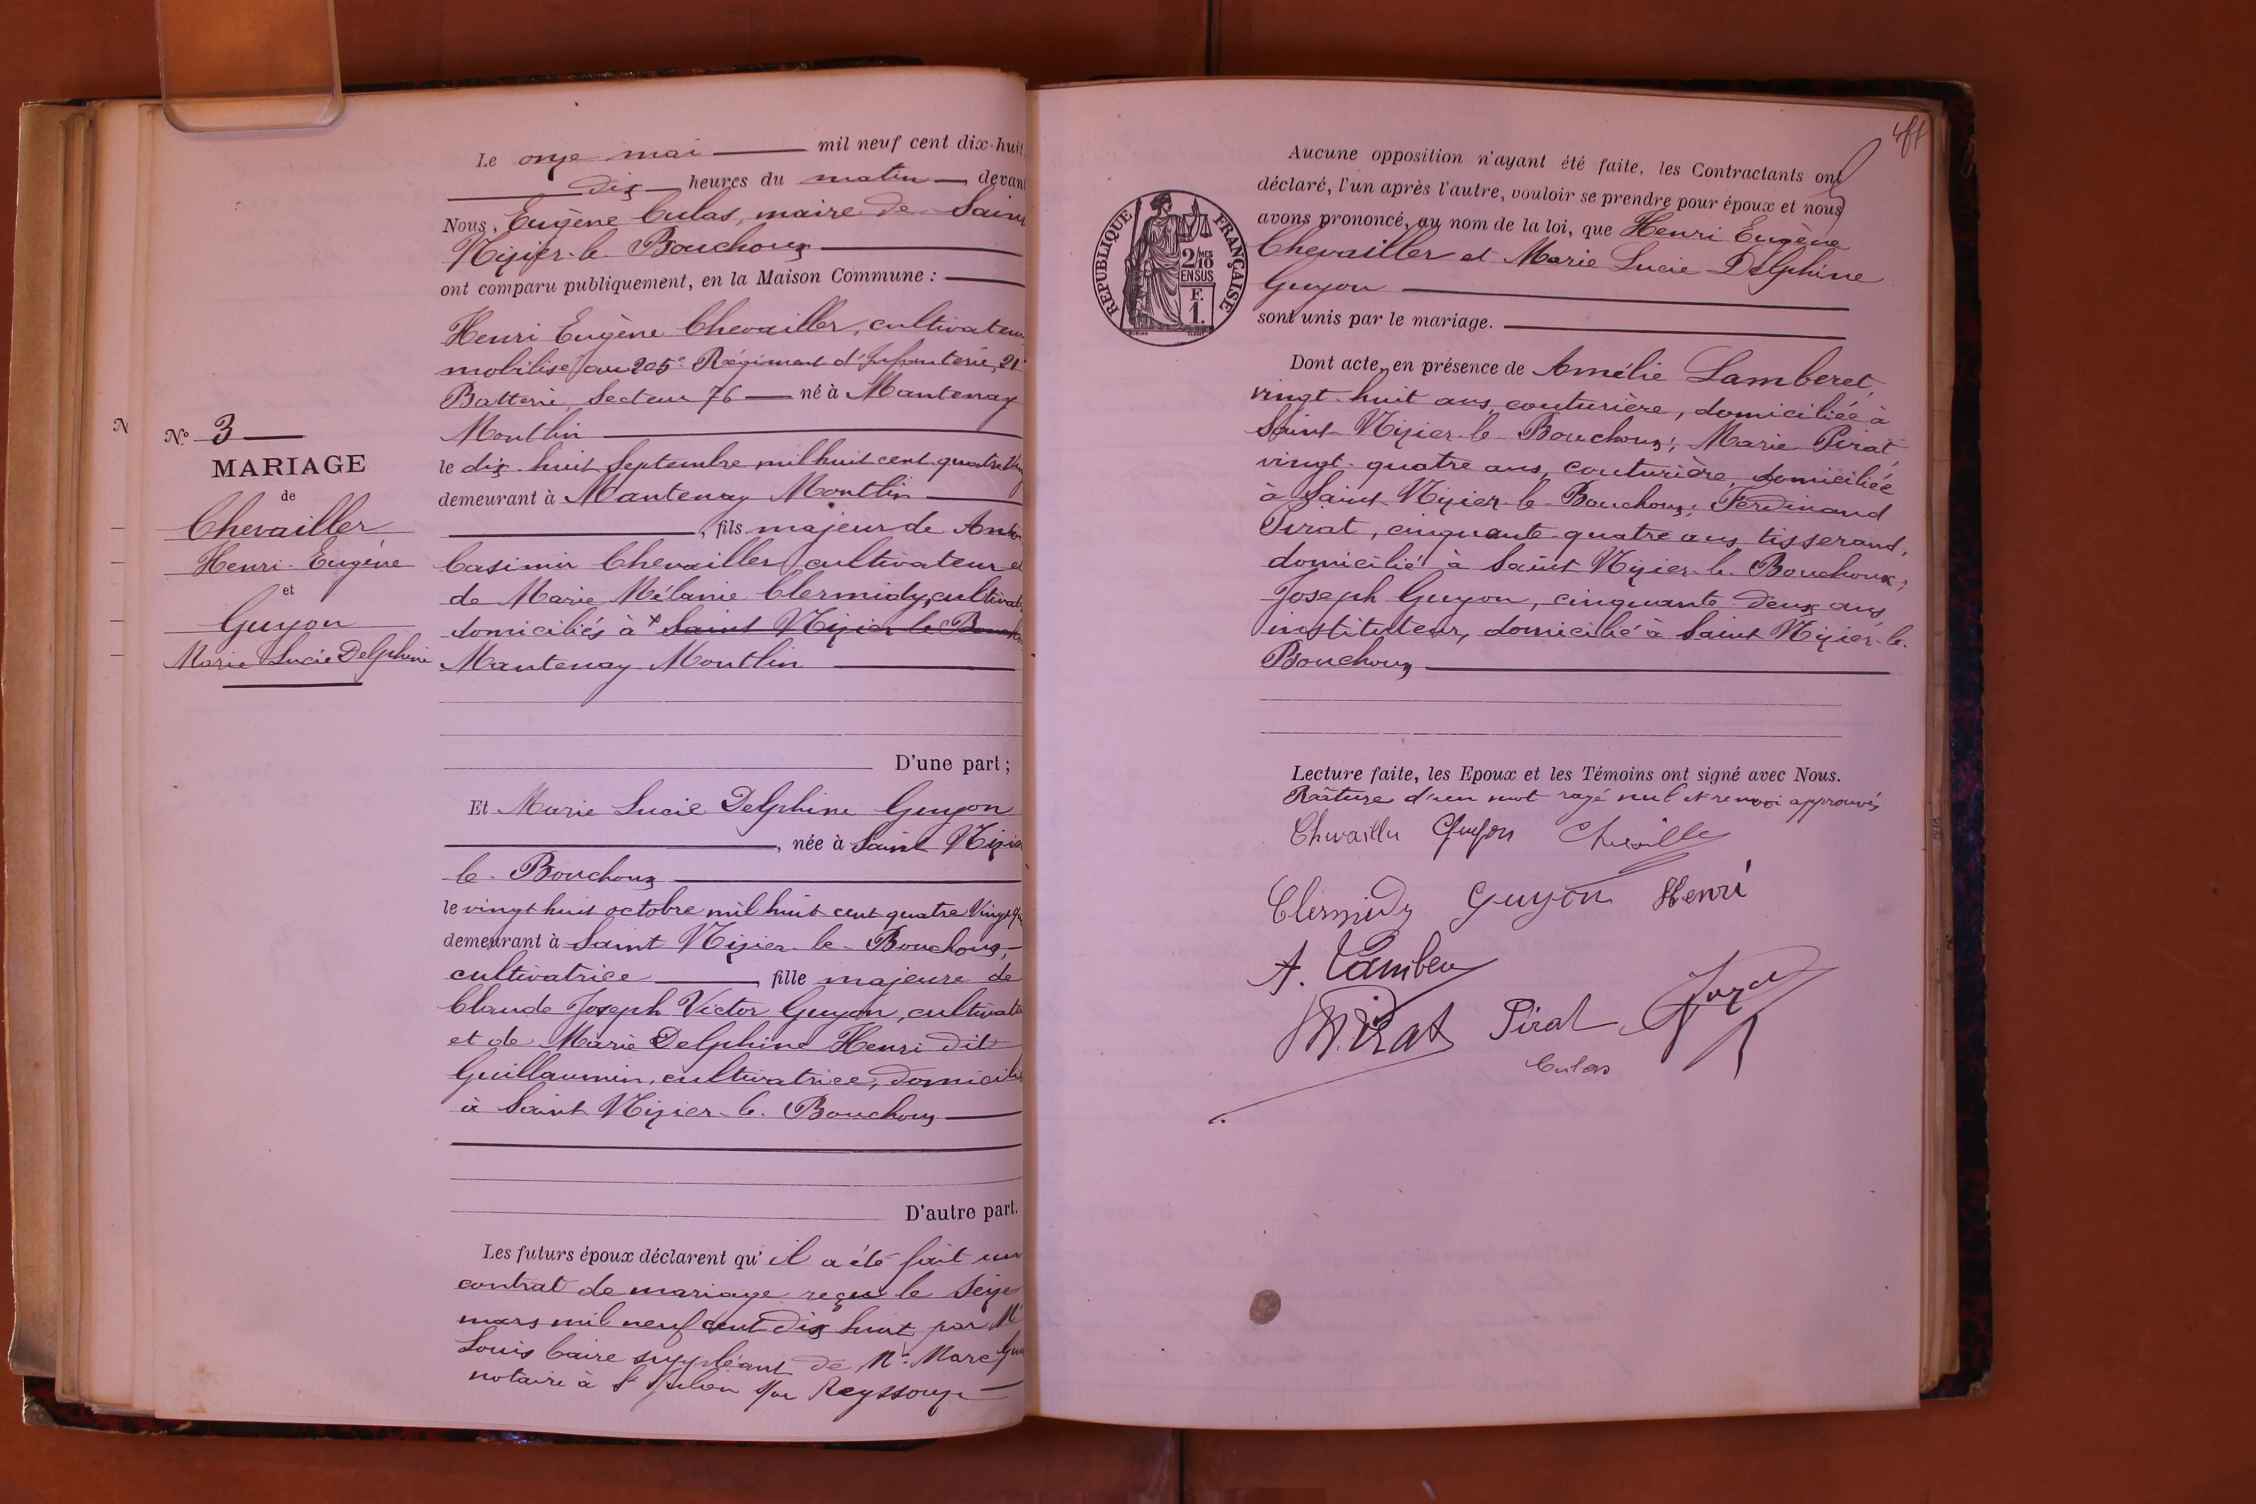 Le onze mai mil neuf cent dix-huit
dix heures du matin, devant
Nous, Eugène Culas, maire de Saint
Nizier-le-Bouchoux
ont comparu publiquement, en la Maison Commune :
Henri Eugène Chevailler, cultivateur
mobilisé au 205e Régiment d'Infanterie, 21e
Batterie, Secteur 76 né à Mantenay
Montlin
le dix-huit Septembre mil huit cent quatre Ving
demeurant à Mantenay Montlin
, fils majeur de
Casimir Chevailler cultivateur et
de Marie Mélanie Clermidy, cultivat
domiciliés à x Saint Nizier le Bouchou
Mantenay Montlin
D'une part ;
Et Marie Lucie Delphine Guyon
, née à Saint Nizier
le-Bouchoux
le vingt huit octobre mil huit cent quatre Vingt
demeurant à Saint Nizier-le-Bouchoux,
cultivatrice, fille majeure de
Claude Joseph Victor Guyon, cultivate
et de Marie Delphine Henri dit
Guillaumin, cultivatrice, domicili
à Saint Nizier-le-Bouchoux
D'autre part.
Les futurs époux déclarent qu'il a été fait un
contrat de mariage reçu le Seize
mars mil neuf cent dix huit par Me
Louis Caire suppléant de Me Marc
notaire à St Julien s/ Reyssouze
N
No 3
MARIAGE
de
Chevailler
Henri-Eugène
et
Guyon
Marie Lucie Delphine
RÉPUBLIQUE FRANÇAISE
2/10
EN SUS
F.
1.
Aucune opposition n'ayant été faite, les Contractants ont
déclaré, l'un après l'autre, vouloir se prendre pour époux et nous
avons prononcé, au nom de la loi, que Henri Eugène
Chevailler et Marie Lucie Delphine
Guyon
sont unis par le mariage.
Dont acte, en présence de Amélie Lamberet,
vingt-huit ans, couturière, domiciliée à
Saint Nizier-le-Bouchoux; Marie Pirat,
vingt-quatre ans, couturière, domiciliée
à Saint Nizier-le-Bouchoux; Ferdinand
Pirat, cinquante quatre ans, tisserand,
domicilié à Saint Nizier-le-Bouchoux;
Joseph Guyon, cinquante-deux ans
instituteur, domicilié à Saint Nizier-le-
Bouchoux
Lecture faite, les Epoux et les Témoins ont signé avec Nous.
Râture d'un mot rayé nul et renvoi approuvés
Chevailler Guyon
Clermidy Guyon Henri
A. Lamberet
M. Pirat Pirat
Culas